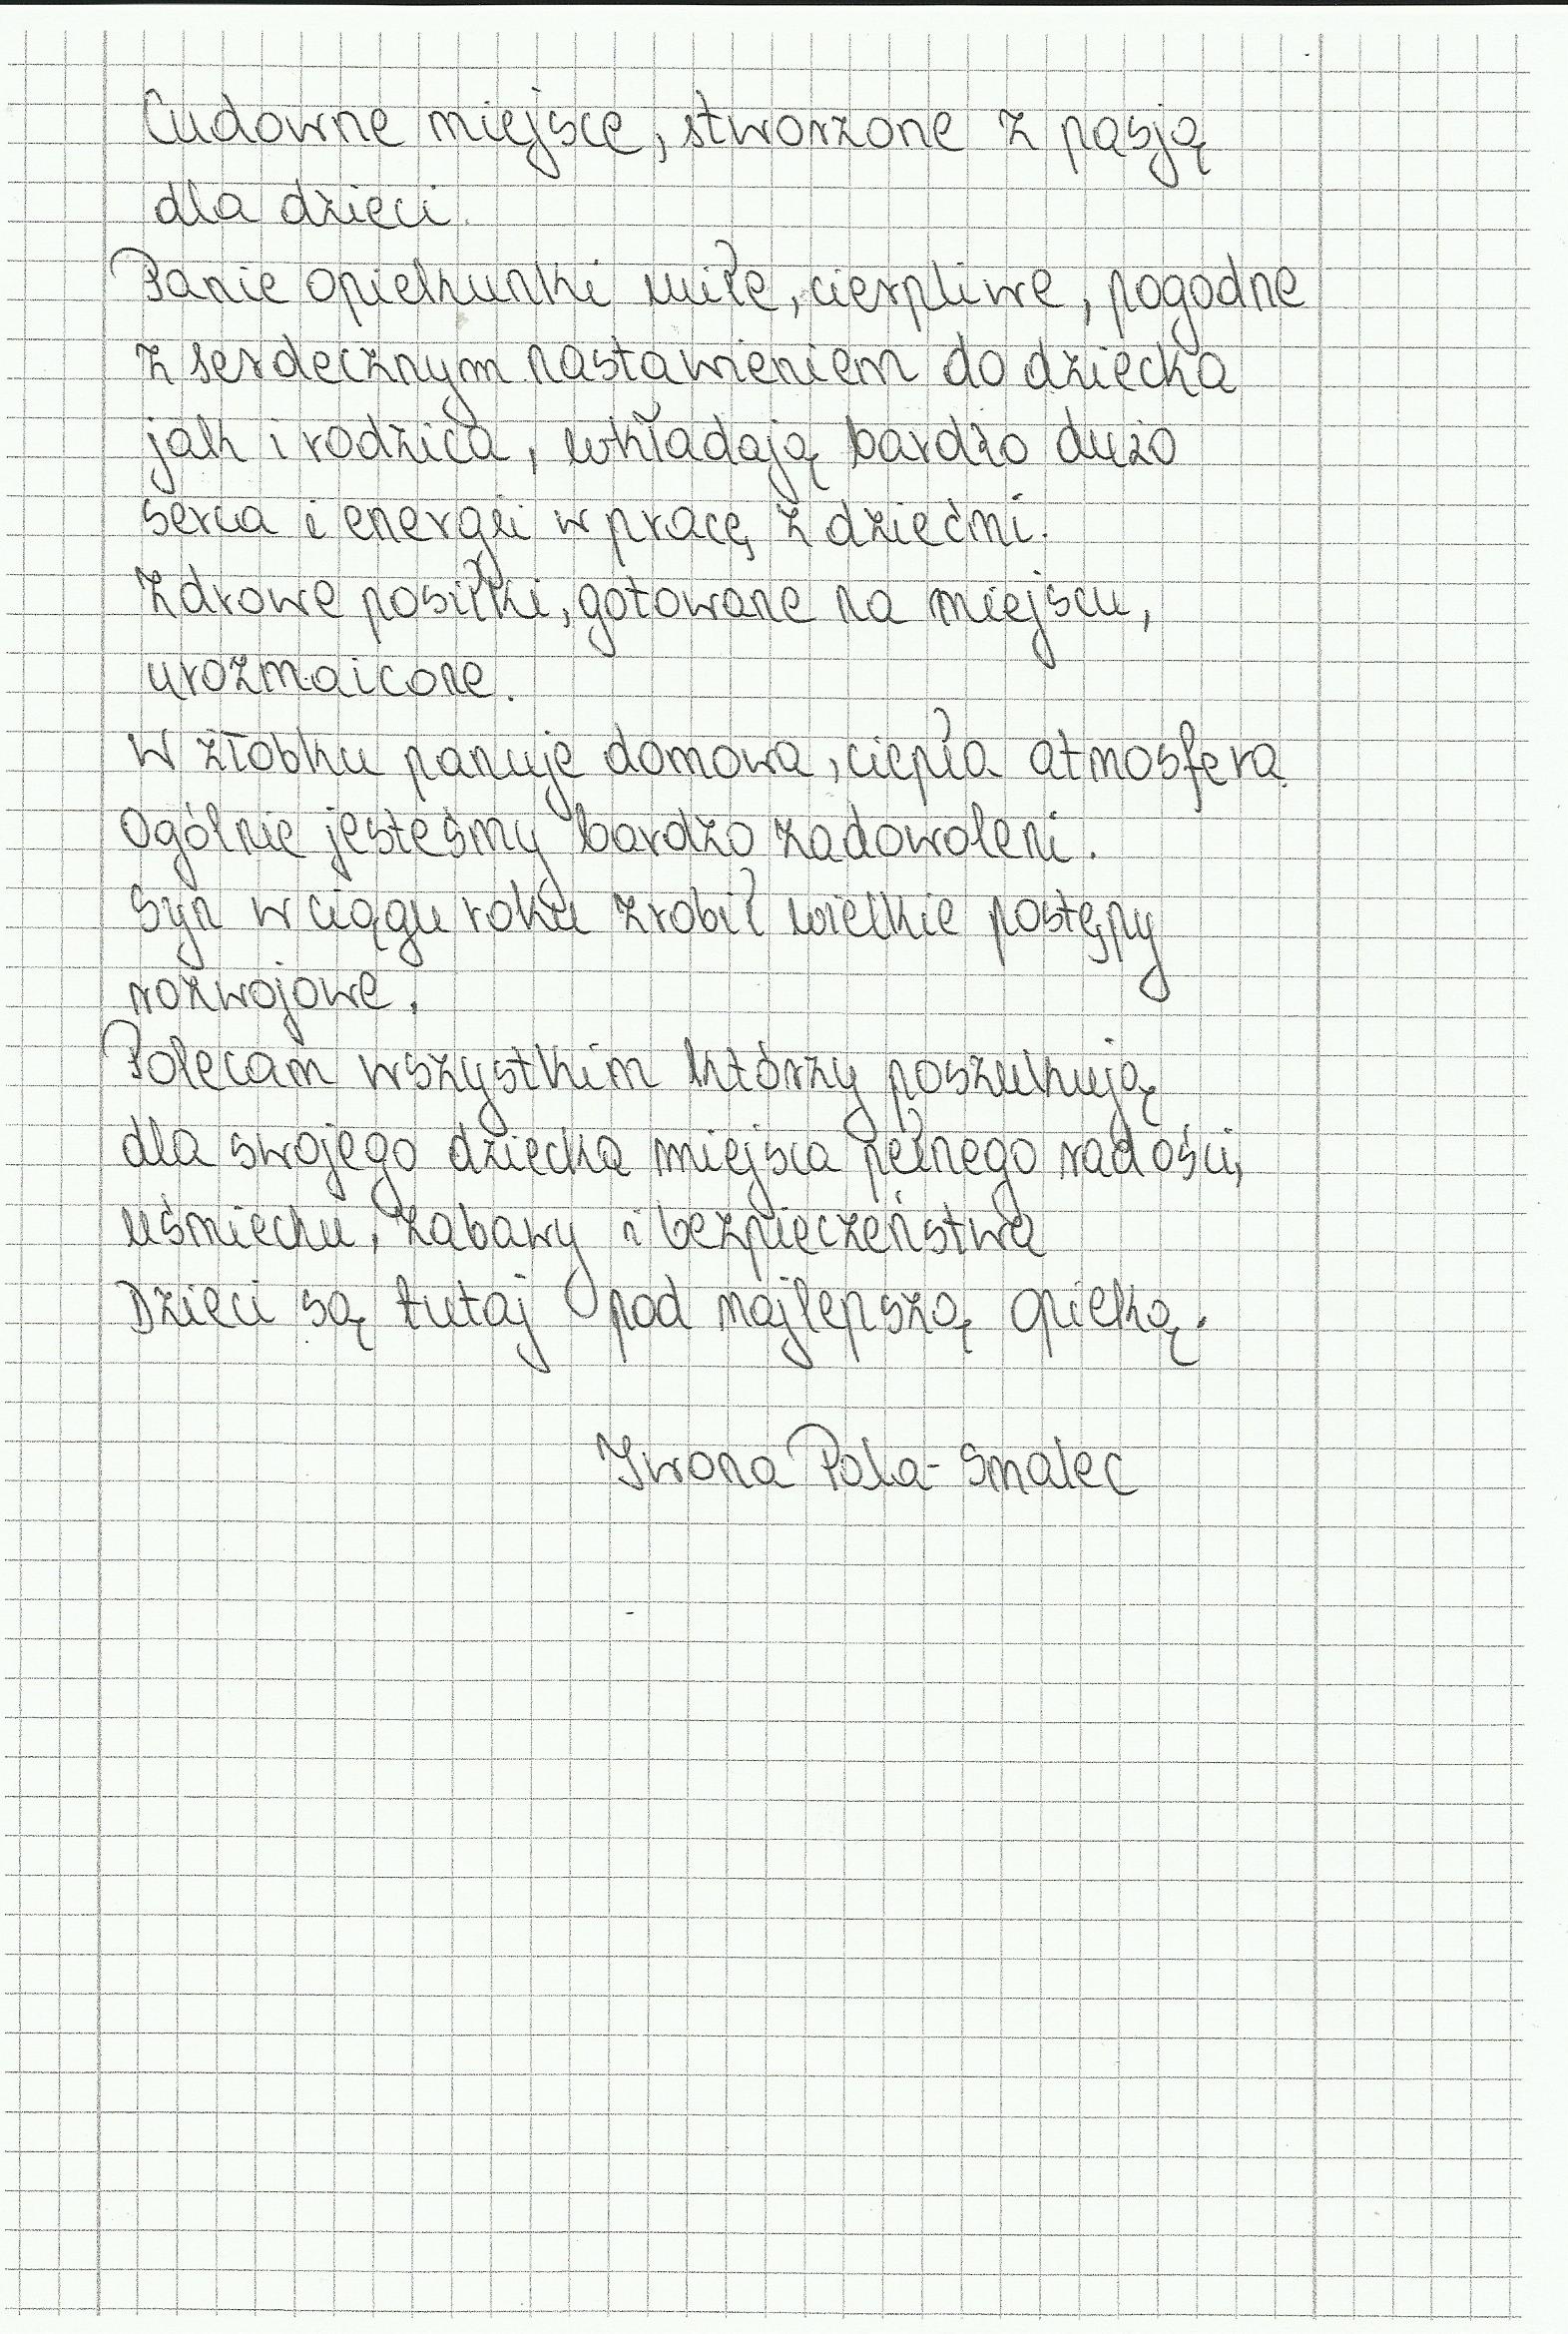 Cudowne miejsce, stworzone z pasją
dla dzieci.
Panie opiekunki miłe, cierpliwe, pogodne
z serdecznym nastawieniem do dziecka
jak i rodzica, wkładają bardzo dużo
serca i energii w pracę z dziećmi.
Zdrowe posiłki, gotowane na miejscu,
urozmaicone.
W żłobku panuje domowa, ciepła atmosfera.
Ogólnie jesteśmy bardzo zadowoleni.
Syn w ciągu roku zrobił wielkie postępy
rozwojowe.
Polecam wszystkim którzy poszukują
dla swojego dziecka miejsca pełnego radości,
uśmiechu, zabawy i bezpieczeństwa
Dzieci są tutaj pod najlepszą opieką.
Iwona Pala-Smalec